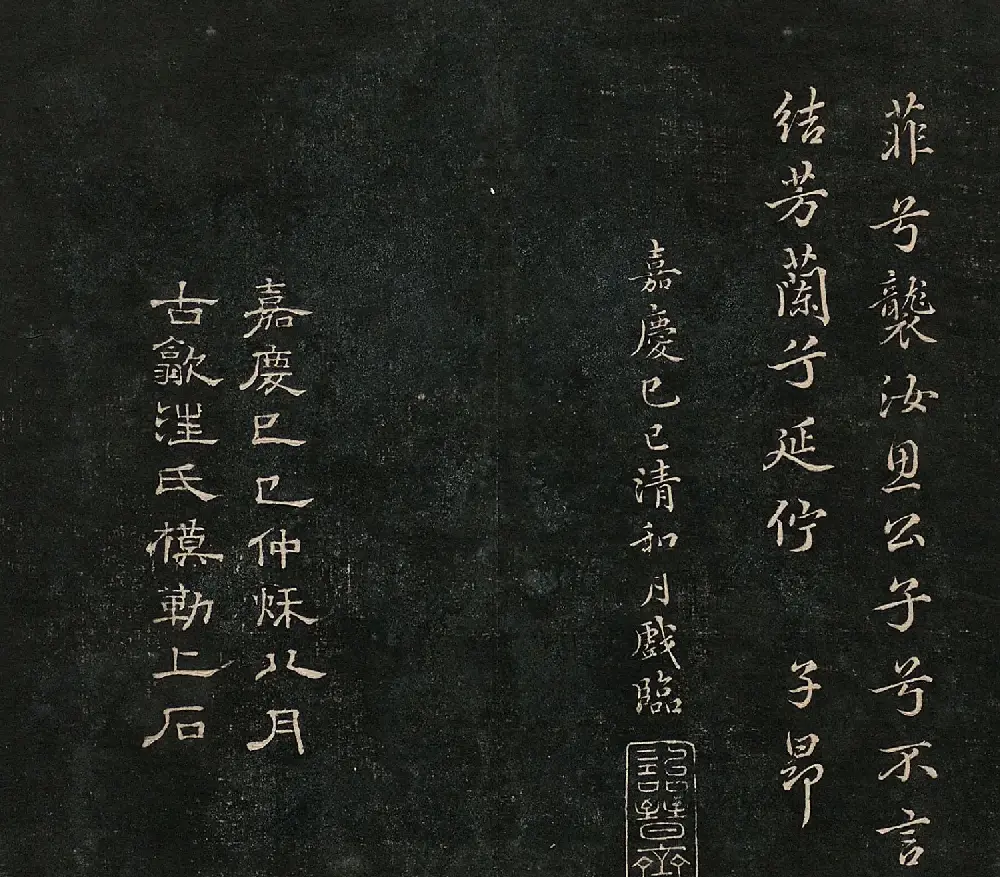 菲兮襲汝思公子兮不言
結芳蘭兮延佇 子昂
嘉慶己巳清和月戲臨
詒晉齋
嘉慶己巳仲穌八月
古歙洼氏模勒上石